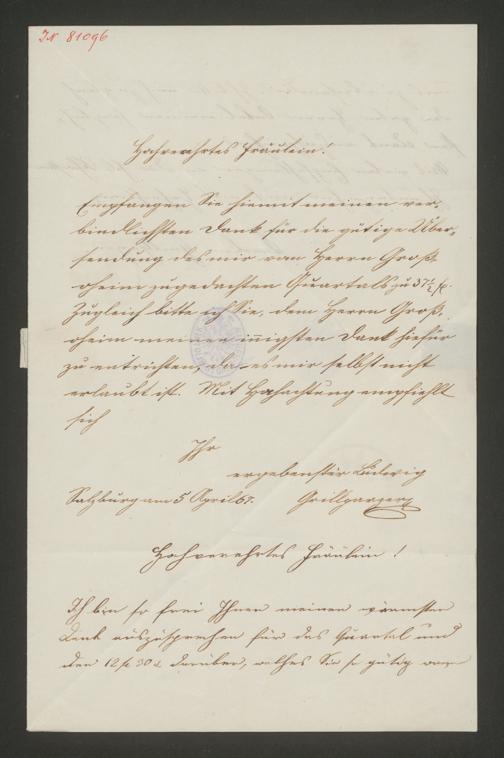 IN 81096
Hochverehrtes Fräulein!
Empfangen Sie hiemit meinen ver-
bindlichsten Dank für die gütige Über-
sendung des mir vom Herrn Groß-
oheim zugedachten Quartals zu 37½ fl.
Zugleich bitte ich Sie, dem Herrn Groß-
oheim meinen innigsten Dank hiefür
zu entrichten, da es mir selbst nicht
erlaubt ist. Mit Hochachtung empfiehlt
sich
Ihr
ergebenster Ludwig
Salzburg am 5 April 67. Grillparzer
Hochverehrtes Fräulein!
Ich bin so frei Ihnen meinen wärmsten
Dank auszusprechen für das Quartal und
den 12 fl 30 x darüber, welches Sie so gütig waren